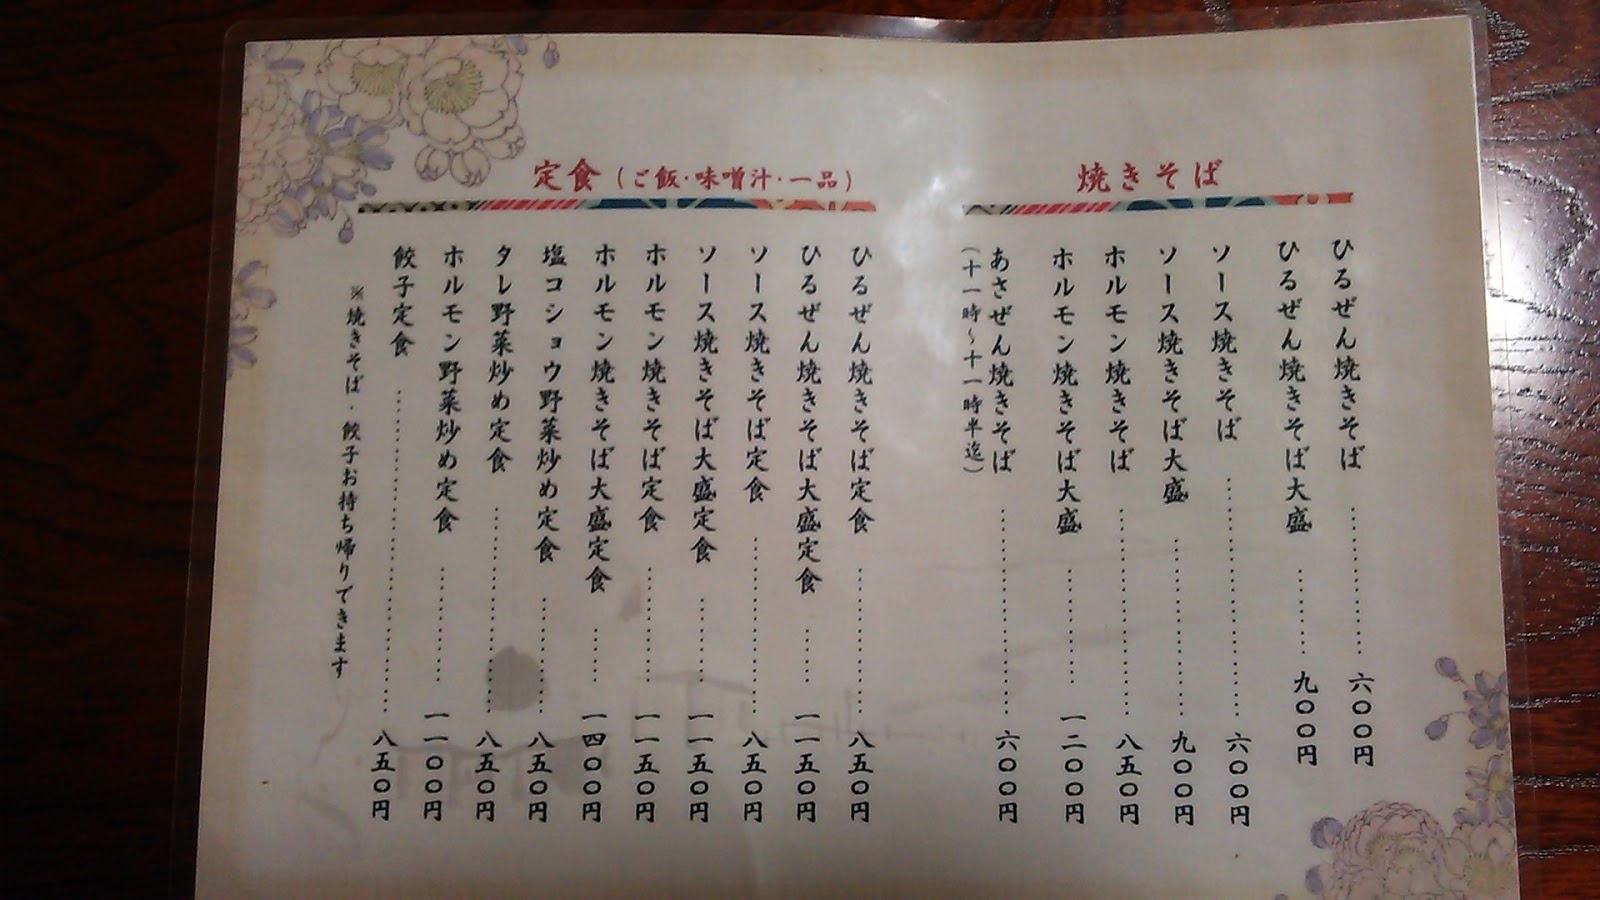 焼きそば
ひるぜん焼きそば…………六〇〇円
ひるぜん焼きそば大盛………九〇〇円
ソース焼きそば…………六〇〇円
ソース焼きそば大盛…………九〇〇円
ホルモン焼きそば…………八五〇円
ホルモン焼きそば大盛…………一二〇〇円
あさぜん焼きそば…………六〇〇円
(十一時～十一時半迄)
定食(ご飯・味噌汁・一品)
ひるぜん焼きそば定食…………八五〇円
ひるぜん焼きそば大盛定食……一一五〇円
ソース焼きそば定食…………八五〇円
ソース焼きそば大盛定食………一一五〇円
ホルモン焼きそば定食…………一一五〇円
ホルモン焼きそば大盛定食……一四〇〇円
塩コショウ野菜炒め定食…………八五〇円
タレ野菜炒め定食…………八五〇円
ホルモン野菜炒め定食…………一一〇〇円
餃子定食…………八五〇円
※焼きそば・餃子お持ち帰りできます